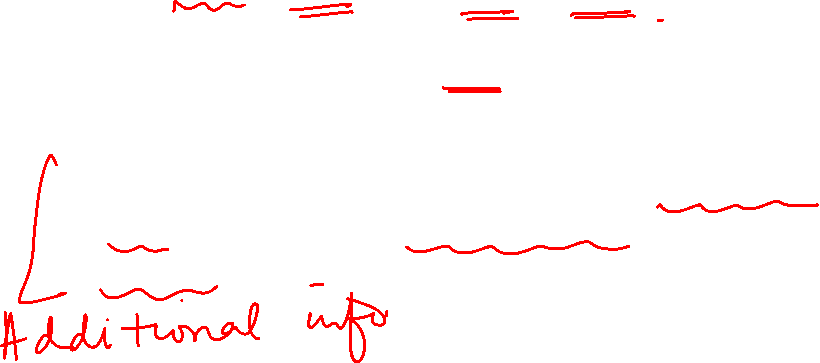 Additional info